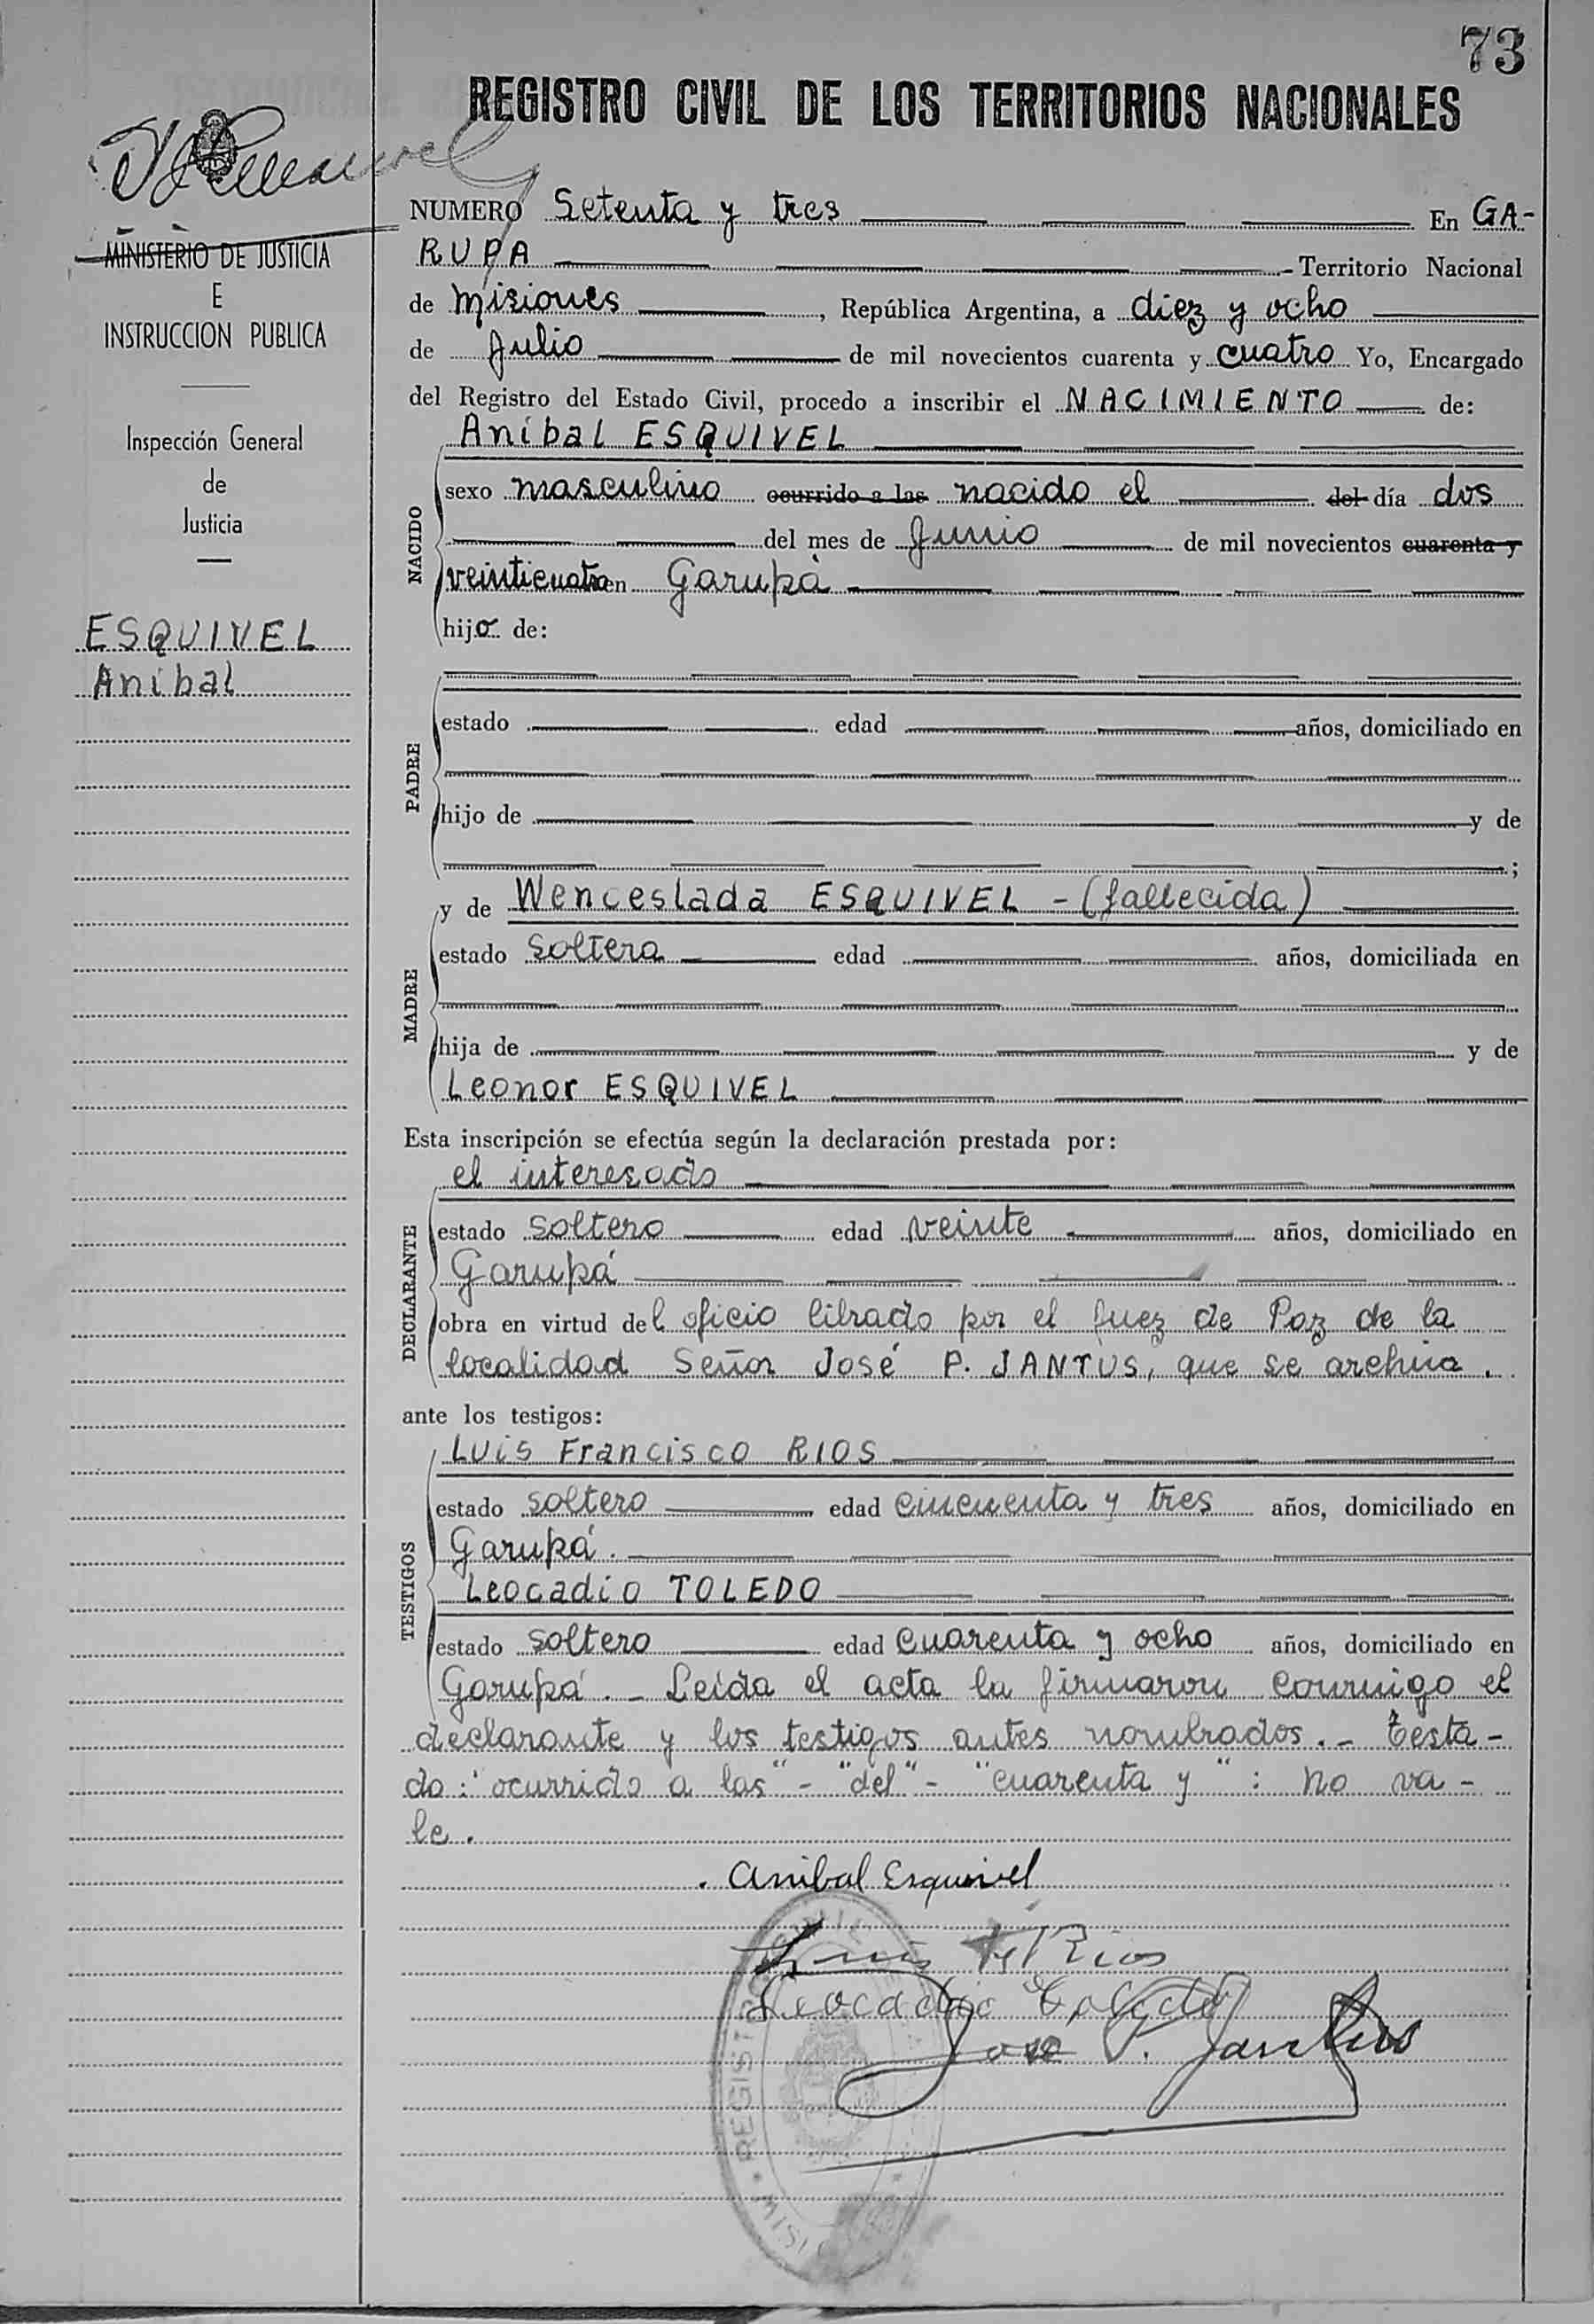 73
REGISTRO CIVIL DE LOS TERRITORIOS NACIONALES
MINISTERIO DE JUSTICIA
E
INSTRUCCION PUBLICA
Inspección General
de
Justicia
ESQUIVEL
Aníbal
NUMERO Setenta y tres En GA-
RUPA Territorio Nacional
de Misiones, República Argentina, a diez y ocho
de Julio de mil novecientos cuarenta y cuatro Yo, Encargado
del Registro del Estado Civil, procedo a inscribir el NACIMIENTO de:
Aníbal ESQUIVEL
NACIDO
sexo masculino ocurrido a las nacido el del día dos
del mes de Junio de mil novecientos cuarenta y
veinticuatro en Garupá
hijo de:
PADRE
estado edad años, domiciliado en
hijo de y de
;
y de Wenceslada ESQUIVEL - (fallecida)
MADRE
estado soltera edad años, domiciliada en
hija de y de
Leonor ESQUIVEL
Esta inscripción se efectúa según la declaración prestada por:
el interesado
DECLARANTE
estado soltero edad veinte años, domiciliado en
Garupá
obra en virtud del oficio librado por el Juez de Paz de la
localidad Señor José P. JANTUS, que se archiva.
ante los testigos:
Luis Francisco RIOS
TESTIGOS
estado soltero edad cincuenta y tres años, domiciliado en
Garupá.
Leocadio TOLEDO
estado soltero edad cuarenta y ocho años, domiciliado en
Garupá. - Leída el acta la firmaron conmigo el
declarante y los testigos antes nombrados. - Testa-
do: "ocurrido a las" - "del" - "cuarenta y" : no va-
le.
Anibal Esquivel
Luis F Rios
Leocadio Toledo
José P. Jantus
REGISTRO CIVIL